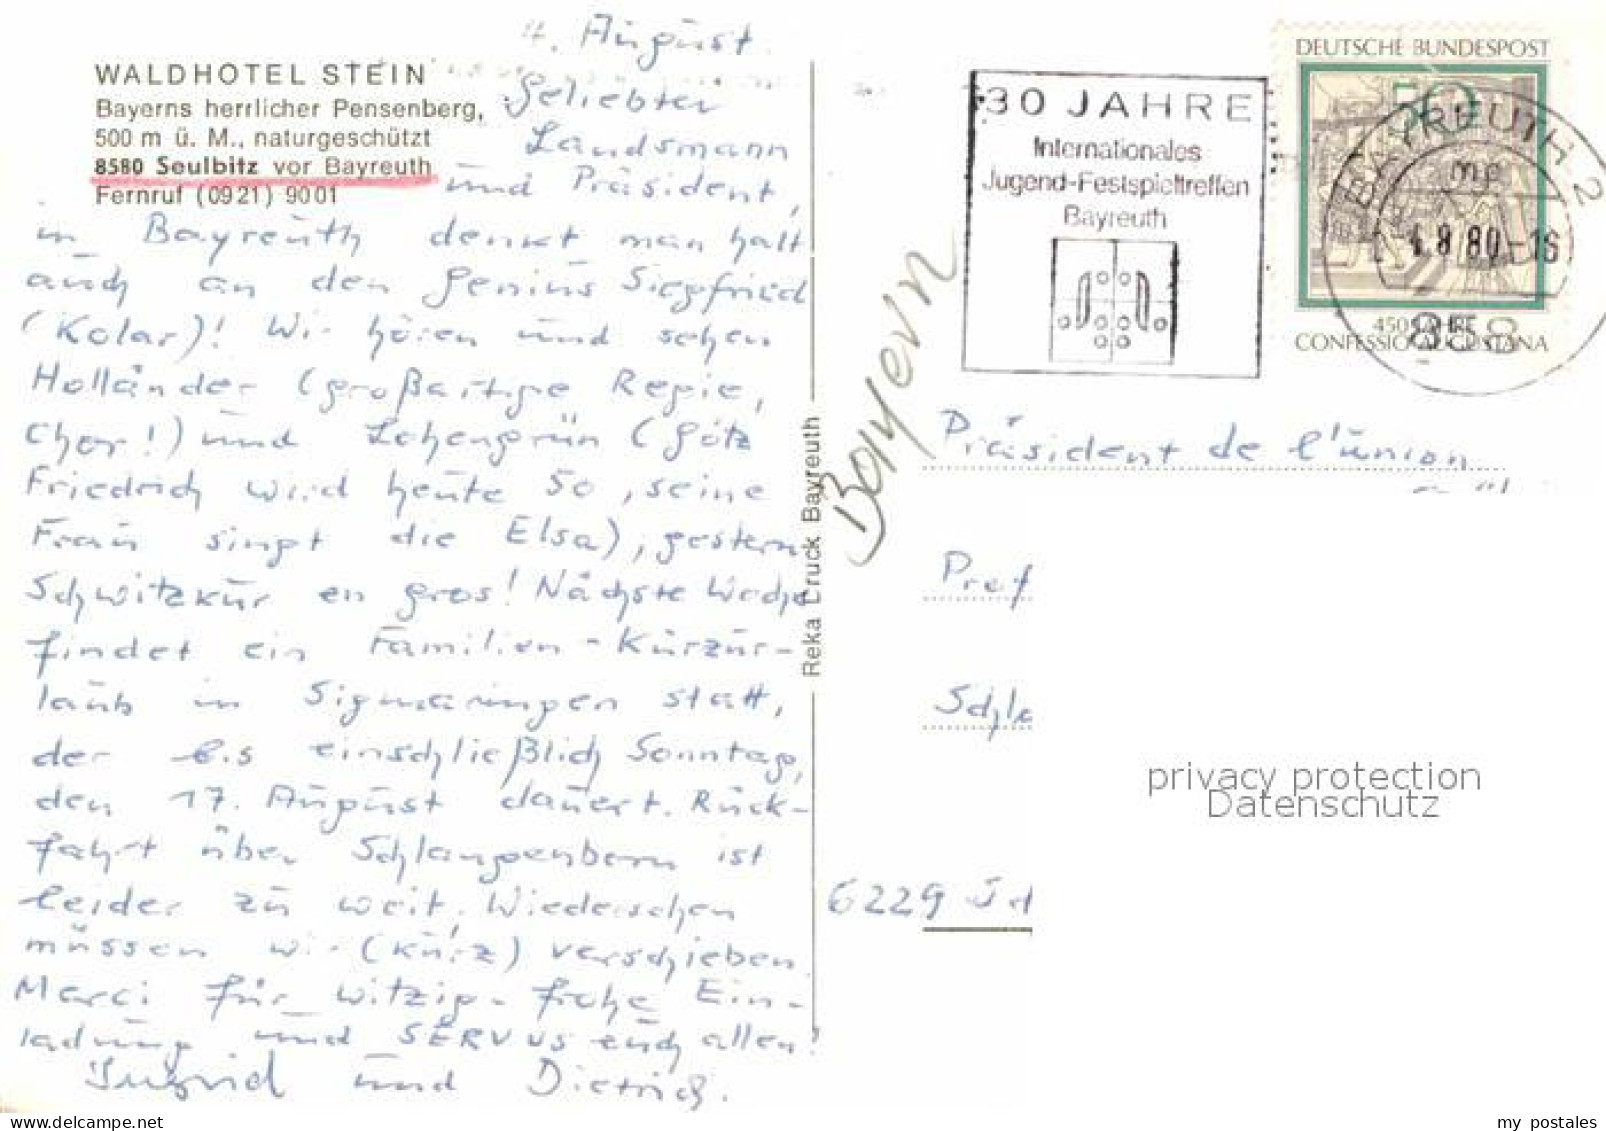 WALDHOTEL STEIN
Bayerns herrlicher Pensenberg,
500 m ü. M., naturgeschützt
8580 Seulbitz vor Bayreuth
Fernruf (0921) 9001
4. August
Geliebter
Landsmann
und Präsident,
in Bayreuth denkt man halt
auch an den Genius Siegfried
(Kolar)! Wir hören und sehen
Holländer (großartige Regie,
Chor!) und Lohengrün (Götz
Friedrich wird heute 50, seine
Frau singt die Elsa), gestern
Schwitzkur en gros! Nächste Woche
findet ein Familien-Kurzur-
laub in Sigmaringen statt,
der bis einschließlich Sonntag,
den 17. August dauert. Rück-
fahrt über Schlangenbern ist
leider zu weit. Wiedersehen
müssen wir (kurz) verschieben.
Merci für witzig-frohe Ein-
ladung und SERVUS euch allen!
Ingrid und Dietrich.
Reka Druck Bayreuth
Bayern
30 JAHRE
Internationales
Jugend-Festspieltreffen
Bayreuth
DEUTSCHE BUNDESPOST
50
450 JAHRE
CONFESSIO AUGUSTANA
BAYREUTH 2
mp
4.8.80-16
858
Präsident de l'union
Prof
Schla
6229
privacy protection
Datenschutz
my postales
www.delcampe.net